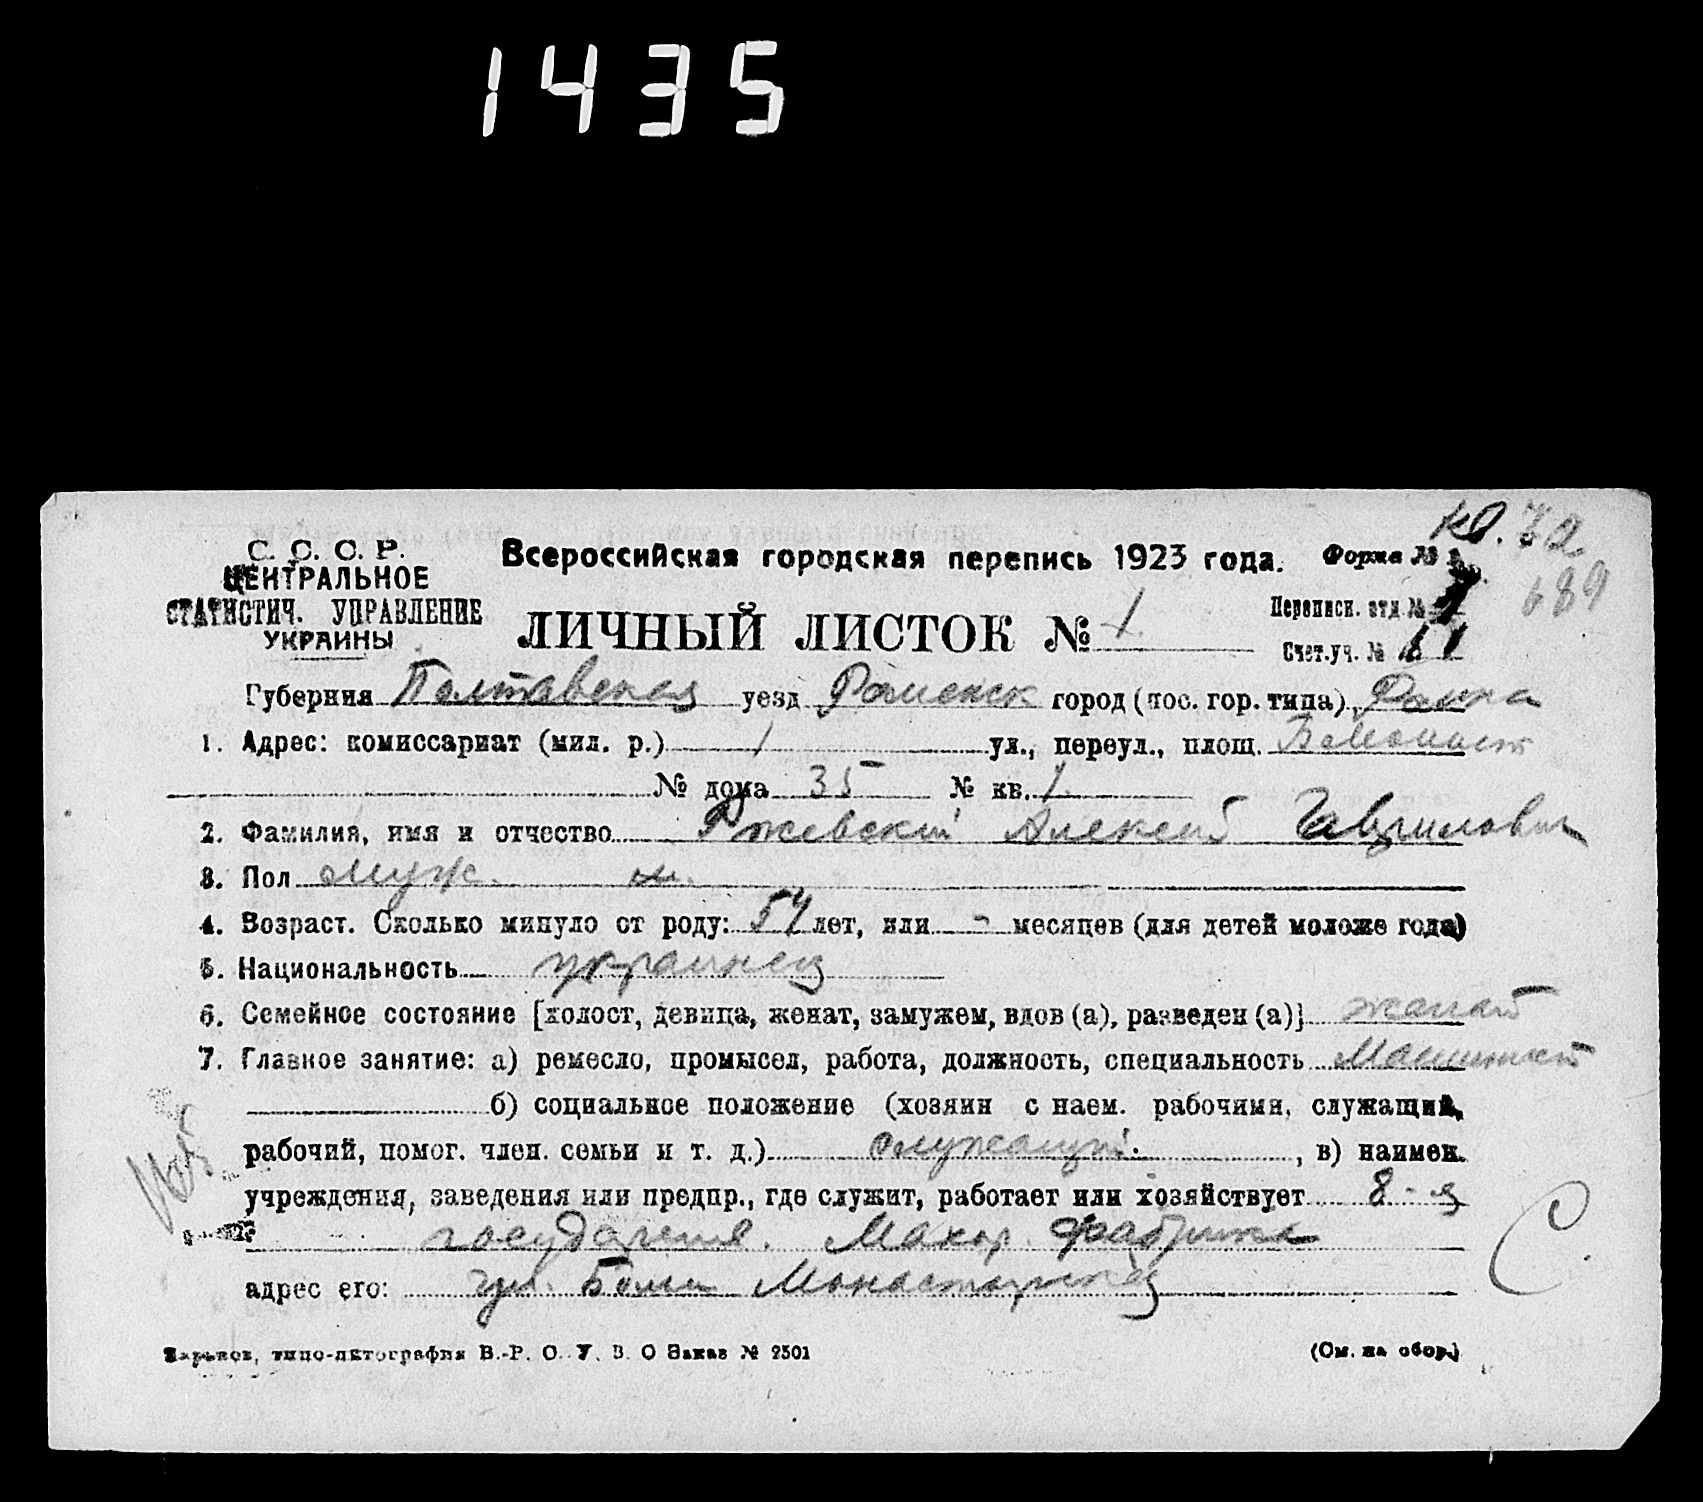 1435
С. С. С. Р.
ЦЕНТРАЛЬНОЕ
СТАТИСТИЧ. УПРАВЛЕНИЕ
УКРАИНЫ
Всероссийская городская перепись 1923 года.
Форма №
72
689
ЛИЧНЫЙ ЛИСТОК № 1
Переписн. отд. №
Счет. уч. №
Губерния Полтавская уезд Роменск город (пос. гор. типа)
1. Адрес: комиссариат (мил. р.) 1 ул., переул., площ.
№ дома 35 № кв. 1
2. Фамилия, имя и отчество Ржевский Алексей Гаврилович
3. Пол муж. м.
4. Возраст. Сколько минуло от роду: 54 лет, или - месяцев (для детей моложе года)
5. Национальность украинец
6. Семейное состояние [холост, девица, женат, замужем, вдов (а), разведен (а)] женат
7. Главное занятие: а) ремесло, промысел, работа, должность, специальность Машинист
б) социальное положение (хозяин с наем. рабочими, служащий,
рабочий, помог. член. семьи и т. д.) служащий. , в) наимен.
учреждения, заведения или предпр., где служит, работает или хозяйствует 8-я
государств. Махор. фабрика
адрес его: ул. Больш Монастырск
Харьков, типо-литография В.-Р. О. У. В. О Заказ № 2501
(См. на обор.)